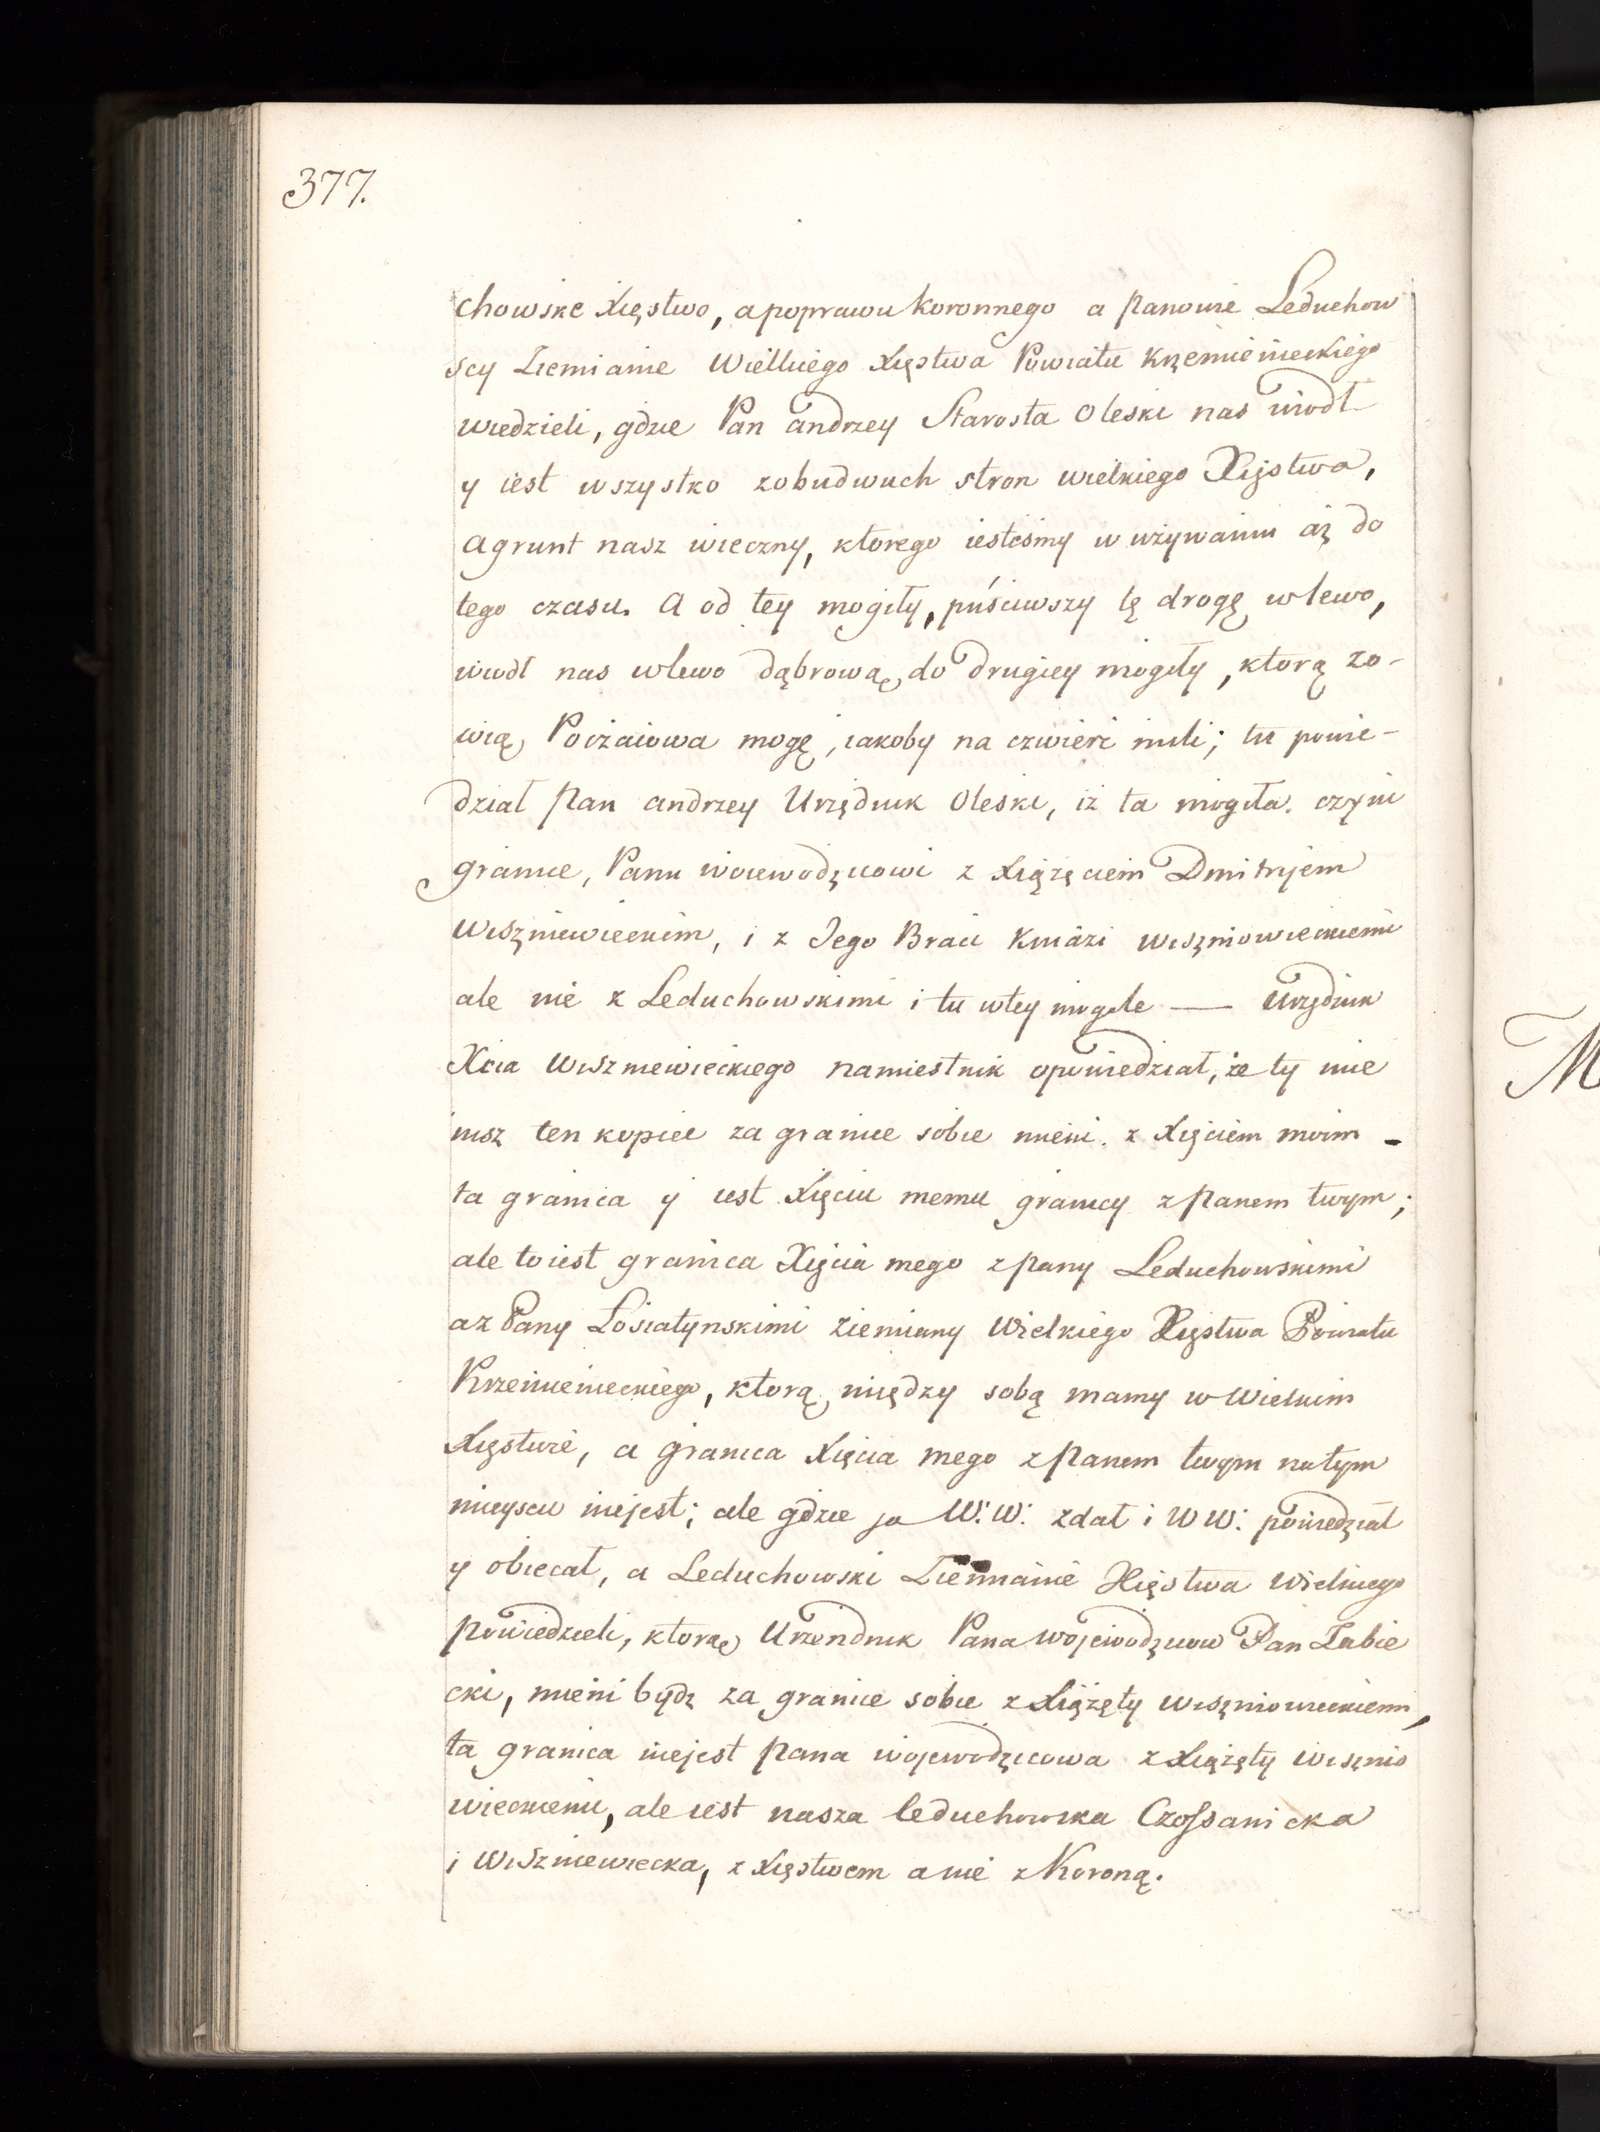 377.
chowske Xięstwo, a poprawu Koronnego a Panowie Leduchow
scy Ziemianie Wielkiego Xięstwa Powiatu Krzemienieckiego
wiedzieli, gdzie Pan Andrzey Starosta Oleski nas wiodł
y iest wszystko zobudwuch stron wielkiego Xięstwa,
a grunt nasz wieczny, ktorego iesteśmy w używaniu aż do
tego czasu. A od tey mogiły, puściwszy tę drogę w lewo,
wiodł nas wlewo dąbrową, do drugiey mogiły, ktorą zo-
wią Poczaiowa mogę, iakoby na czwierć mili; tu powie-
dział Pan Andrzey Urzędnik Oleski, iż ta mogiła. czyni
granice, Panu woiewodzicowi z Xiążęciem Dmitryem
Wiszniewieckim, i z Jego Braci Kniazi Wiszniowieckiemi
ale nie z Leduchowskimi i tu wtey mogile — Urzędnik
Xcia Wiszniewieckiego namiestnik opowiedział, że ty mie
nisz ten kopiec za granice sobie mieni. z Xięciem moim -
ta granica y iest Xięciu memu granicy z Panem twym;
ale to iest granica Xięcia mego z Pany Leduchowskimi
a z Pany Łosiatynskimi ziemiany Wielkiego Xięstwa Powiatu
Krzemienieckiego, ktorą między sobą mamy w Wielkim
Xięstwie, a granica Xięcia mego z Panem twym natym
mieyscu niejest; ale gdzie ja W: W: zdał i W W: powiedział
y obiecał, a Leduchowski Ziemianie Xięstwa Wielkiego
powiedzieli, ktorą Urzendnik Pana Wojewodzicow Pan Zabie
cki, mieni bydz za granice sobie z Xiążęty Wiszniowieckiemi,
ta granica niejest Pana wojewodzicowa z Xiążęty Wisznio
wieckiemi, ale iest nasza leduchowska Czossanicka
i Wiszniewiecka, z Xięstwem a nie z Koroną.
M